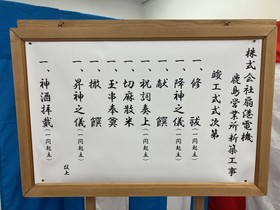 株式会社扇港電機
鹿島営業所新築工事
竣工式式次第
一、修祓(一同起立)
一、降神之儀(一同起立)
一、献饌
一、祝詞奏上(一同起立)
一、切麻散米
一、玉串奉奠
一、撤饌
一、昇神之儀(一同起立)
一、神酒拝戴(一同起立)
以上